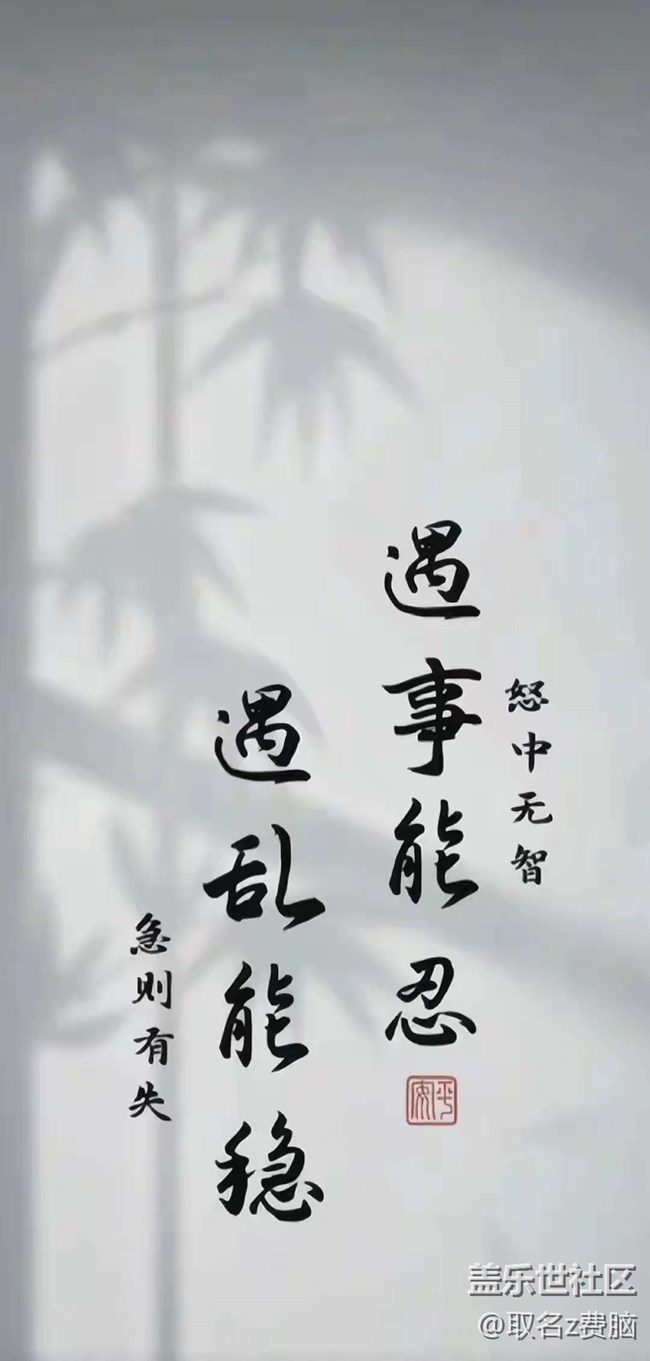 怒中无智
遇事能忍
平安
遇乱能稳
急则有失
盖乐世社区
@取名z费脑